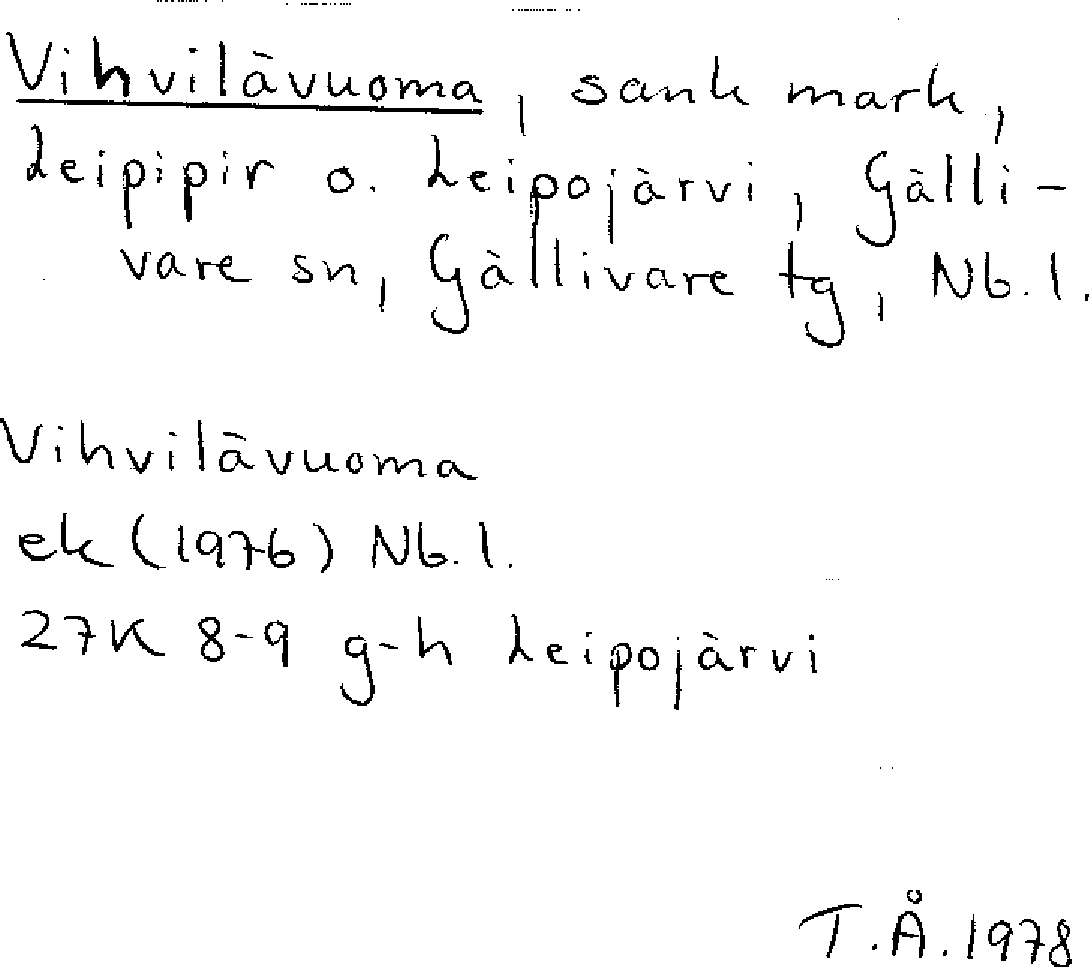 Vihvilävuoma, sank mark,
Leipipir o. Leipojärvi, Gälli-
vare sn, Gällivare tg, Nb.l.
Vihvilävuoma
ek (1976) Nb.l.
27K 8-9 g-h Leipojärvi
T.Å. 1978